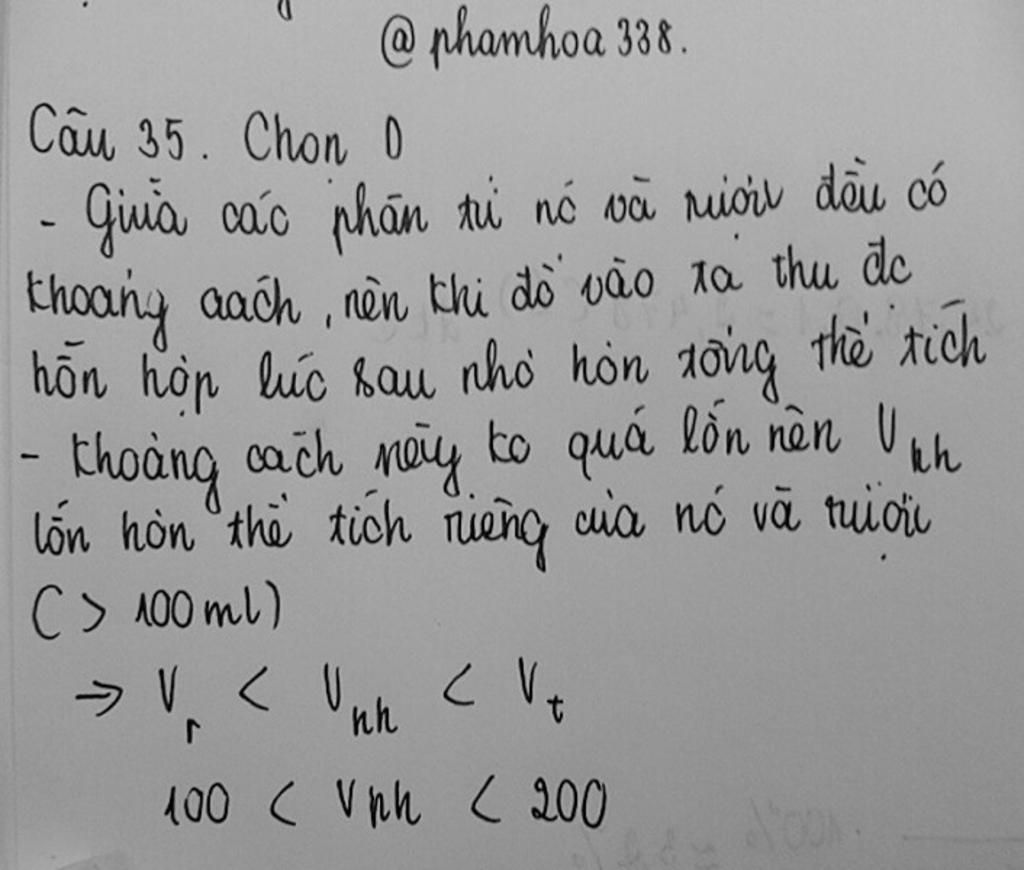 @phamhoa338.
Câu 35. Chọn D
- Giữa các phân tử nc và rượu đều có
khoảng cách, nên khi đổ vào ta thu đc
hỗn hợp lúc sau nhỏ hơn tổng thể tích
- Khoảng cách này ko quá lớn nên Vhh
lớn hơn thể tích riêng của nc và rượu
(> 100ml)
⇒ Vr < Vhh < Vt
100 < Vhh < 200